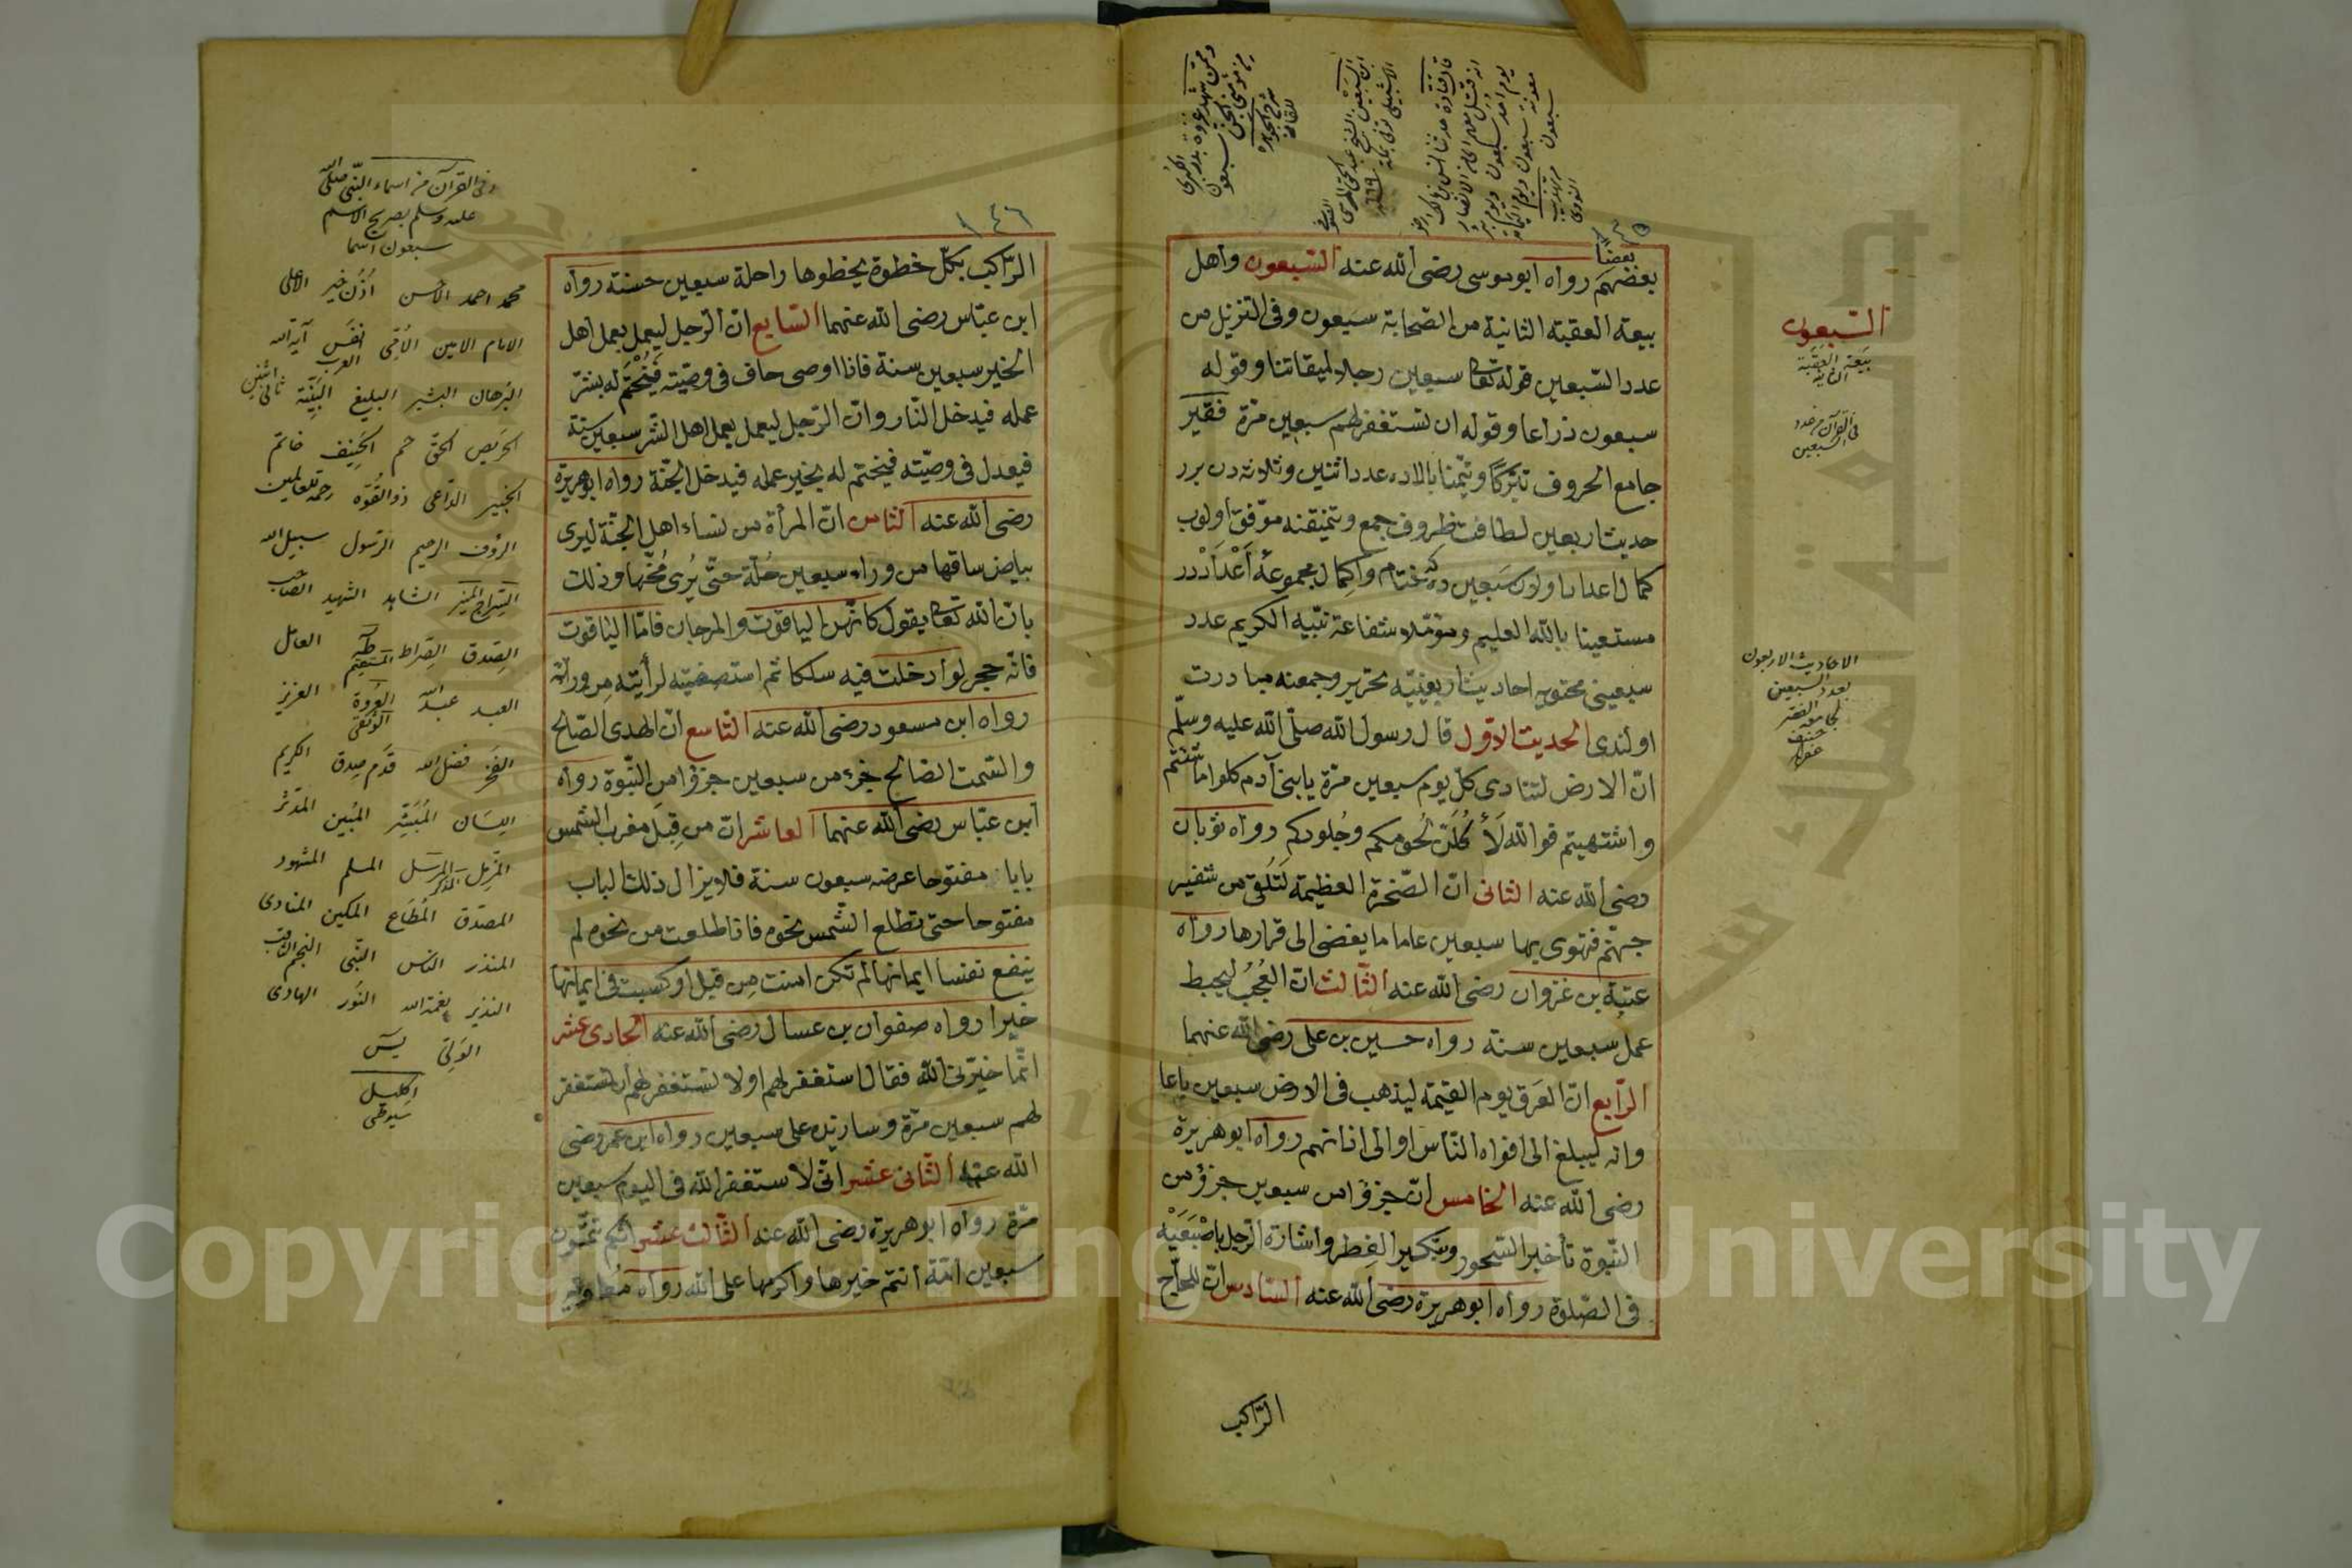 بعضًا
بعضهم رواه ابوموسى رضى الله عنه السبعون واهل
بيعة العقبة الثانية من الصحابة سبعون وفى التنزيل من
عدد السبعين قوله تعا سبعين رجلا لميقاتنا وقوله
سبعون ذراعا وقوله ان تستغفر لهم سبعين مرة فقير
جامع الحروف تبركا وتيمنا بالاده عدد اثنين وثلاثه دن برر
حديث اربعين لطافت ظروف جمع وتنيقنه موفق اولوب
كمال اعداد اولان سبعين ده كه ختام واكمال مجموعۀ اعداددر
مستعينا بالله العليم ومؤملا شفاعة نبيه الكريم عدد
سبعينى محتويه احاديث اربعينيه تحرير وجمعنه مبادرت
اولندى الحديث الاول قال رسول الله صلى الله عليه وسلم
ان الارض لتنادى كل يوم سبعين مرة يا بنى آدم كلوا ما شئتم
واشتهيتم فوالله لأكلن لحومكم وجلودكم رواه ثوبان
رضى الله عنه الثانى ان الصخرة العظيمة لتلقى من شفير
جهنم فتهوى بها سبعين عاما ما يفضى الى قرارها رواه
عتبة بن غزوان رضى الله عنه الثالث ان العجب ليحبط
عمل سبعين سنة رواه حسين بن على رضى الله عنهما
الرابع ان العرق يوم القيمة ليذهب فى الارض سبعين باعا
وانه ليبلغ الى افواه الناس او الى اذانهم رواه ابوهريرة
رضى الله عنه الخامس ان جزؤا من سبعين جزؤ من
النبوة تأخير السحور وتبكير الفطر واشارة الرجل باصبعيه
فى الصلوة رواه ابوهريرة رضى الله عنه السادس ان للحاج
الراكب
السبعون
بيعة العقبة
الثانية
فى القرآن من عدد
السبعين
الاحاديث الاربعون
بعدد السبعين
١٤٦
الراكب بكل خطوة يخطوها راحلة سبعين حسنة رواه
ابن عباس رضى الله عنهما السابع ان الرجل ليعمل بعمل اهل
الخير سبعين سنة فاذا اوصى حاف فى وصيته فيختم له بشر
عمله فيدخل النار وان الرجل ليعمل بعمل اهل الشر سبعين سنة
فيعدل فى وصيته فيختم له بخير عمله فيدخل الجنة رواه ابوهريرة
رضى الله عنه الثامن ان المرأة من نساء اهل الجنة ليرى
بياض ساقها من وراء سبعين حلة حتى يرى مخها وذلك
بان الله تعا يقول كانهن الياقوت والمرجان فاما الياقوت
فانه حجر لو ادخلت فيه سلكا ثم استصفيته لرأيته من ورائه
رواه ابن مسعود رضى الله عنه التاسع ان الهدى الصالح
والسمت الصالح جزء من سبعين جزؤا من النبوة رواه
ابن عباس رضى الله عنهما العاشر ان من قبل مغرب الشمس
بابا مفتوحا عرضه سبعون سنة فلا يزال ذلك الباب
مفتوحا حتى تطلع الشمس نحوه فاذا طلعت من نحوه لم
ينفع نفسا ايمانها لم تكن امنت من قبل او كسبت فى ايمانها
خيرا رواه صفوان بن عسال رضى الله عنه الحادى عشر
انما خيرنى الله فقال استغفر لهم اولا تستغفر لهم ان تستغفر
لهم سبعين مرة وسازيده على سبعين رواه ابن عمر رضى
الله عنه الثانى عشر انى لاستغفر الله فى اليوم سبعين
مرة رواه ابوهريرة رضى الله عنه الثالث عشر انكم تتمون
سبعين امة انتم خيرها واكرمها على الله رواه معاوية
وفى القرآن من اسماء النبى صلى الله
عليه وسلم بصريح الاسم
سبعون اسما
محمد احمد الاحسن اذن خير الاعلى
الامام الامين الامى انفس العرب آية الله
البرهان البشير البليغ البينة ثانى اثنين
الحريص الحق حم الحنيف خاتم
الخبير الداعى ذو القوة رحمة للعالمين
الرؤف الرحيم الرسول سبيل الله
السراج المنير الشاهد الشهيد الصاحب
الصدق الصراط المستقيم طه العامل
العبد عبد الله العروة الوثقى العزيز
الفجر فضل الله قدم صدق الكريم
اللسان المبشر المبين المدثر
المزمل المذكر المرسل المسلم المشهود
المصدق المطاع المكين المنادى
المنذر الناس النبى النجم الثاقب
النذير نعمة الله النور الهادى
الولى يس
اكليل
سيوطى
Copyright © King Saud University